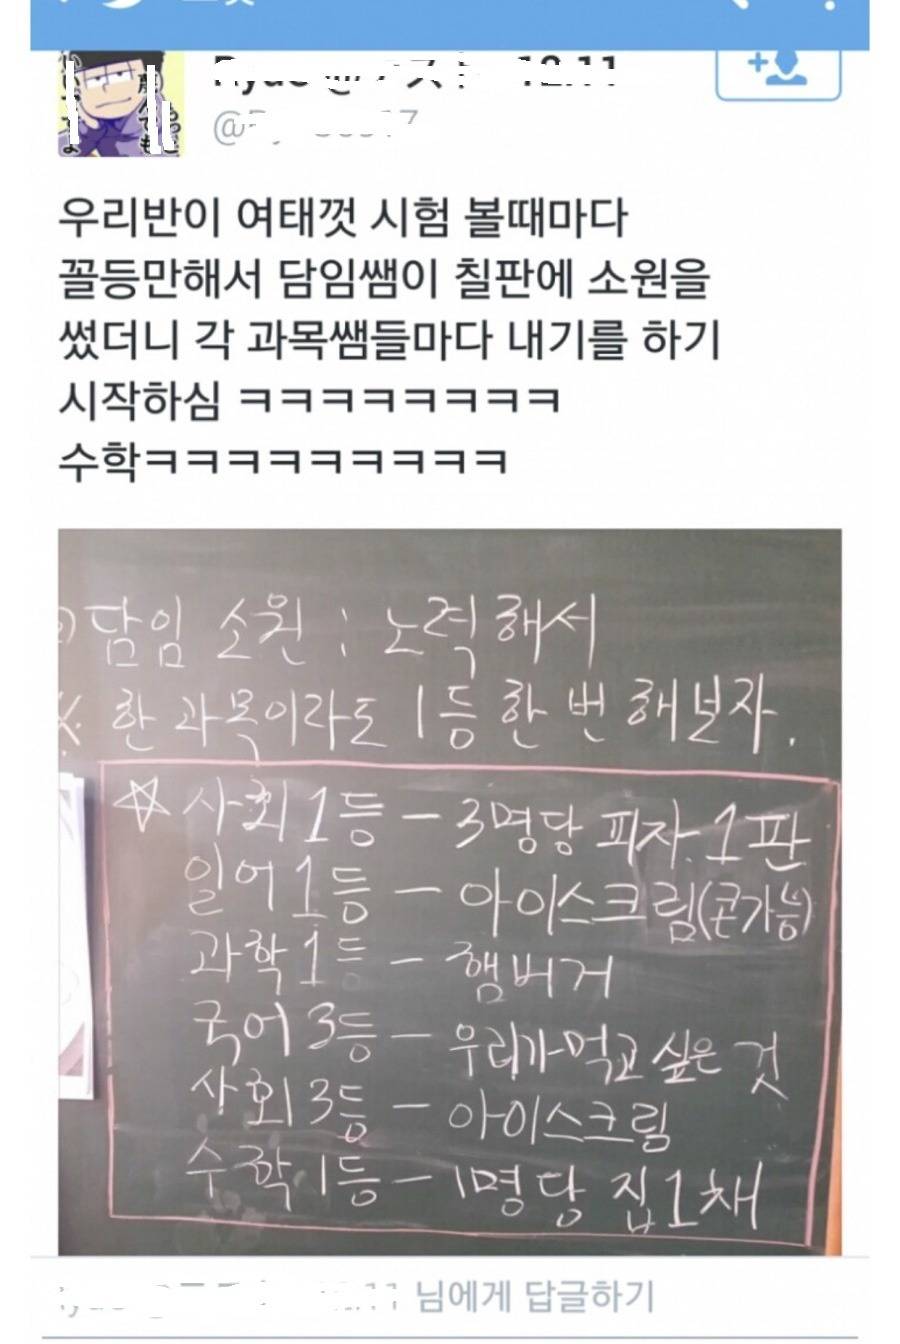 우리반이 여태껏 시험 볼때마다
꼴등만해서 담임쌤이 칠판에 소원을
썼더니 각 과목쌤들마다 내기를 하기
시작하심 ㅋㅋㅋㅋㅋㅋㅋㅋ
수학ㅋㅋㅋㅋㅋㅋㅋㅋㅋ
담임 소원 : 노력해서
한 과목이라도 1등 한 번 해보자.
☆ 사회 1등 - 3명당 피자 1판
일어 1등 - 아이스크림(콘가능)
과학 1등 - 햄버거
국어 3등 - 우리가 먹고 싶은 것
사회 3등 - 아이스크림
수학 1등 - 1명당 집 1채
님에게 답글하기